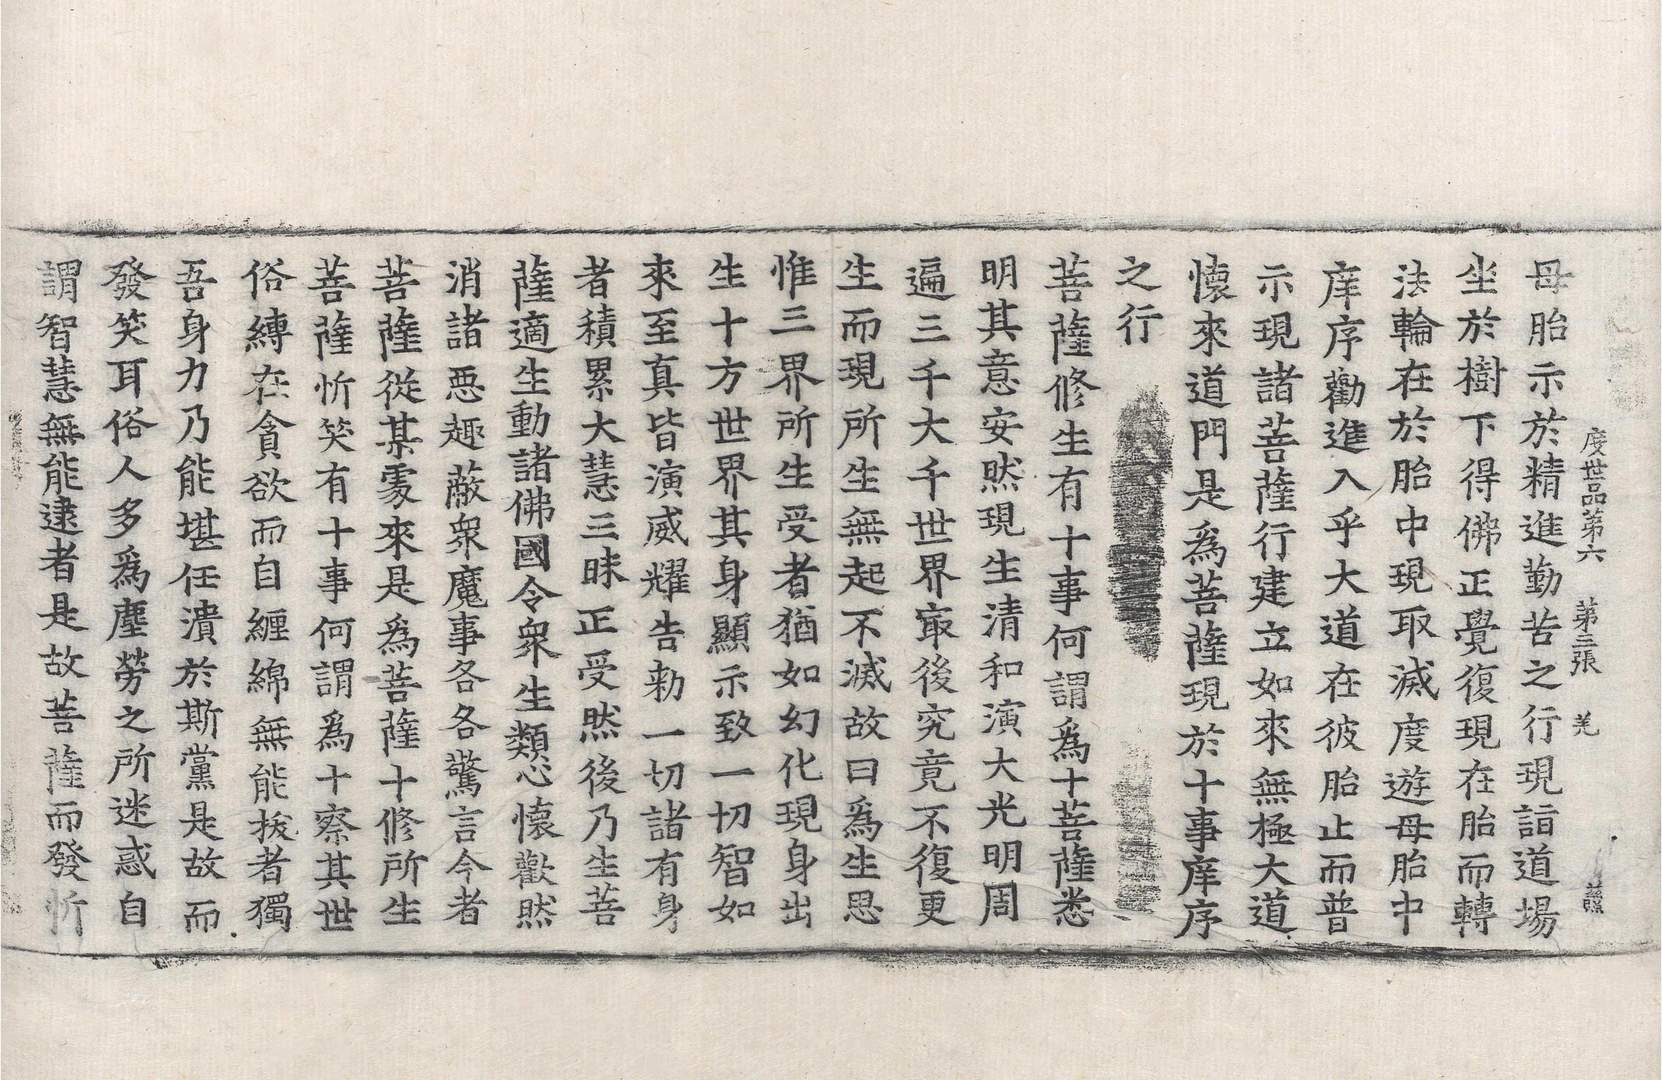 度世品第六 第三張 羌
母胎示於精進勤苦之行現詣道場
坐於樹下得佛正覺復現在胎而轉
法輪在於胎中現取滅度遊母胎中
庠序勸進入乎大道在彼胎止而普
示現諸菩薩行建立如來無極大道
懷來道門是為菩薩現於十事庠序
之行
菩薩修生有十事何謂為十菩薩悉
明其意安然現生清和演大光明周
遍三千大千世界㝡後究竟不復更
生而現所生無起不滅故曰為生思
惟三界所生受者猶如幻化現身出
生十方世界其身顯示致一切智如
來至真皆演威耀告勑一切諸有身
者積累大慧三昧正受然後乃生菩
薩適生動諸佛國令衆生類心懷歡然
消諸惡趣蔽衆魔事各各驚言今者
菩薩從某處來是為菩薩十修所生
菩薩忻笑有十事何謂為十察其世
俗縛在貪欲而自纏綿無能拔者獨
吾身力乃能堪任潰於斯黨是故而
發笑耳俗人多為塵勞之所迷惑自
謂智慧無能逮者是故菩薩而發忻